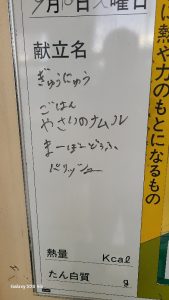 9月10日火曜日
献立名
ぎゅうにゅう
ごはん
やさいのナムル
まーぼーどうふ
熱量 Kcal
たん白質 g
に熱や力のもとになるもの